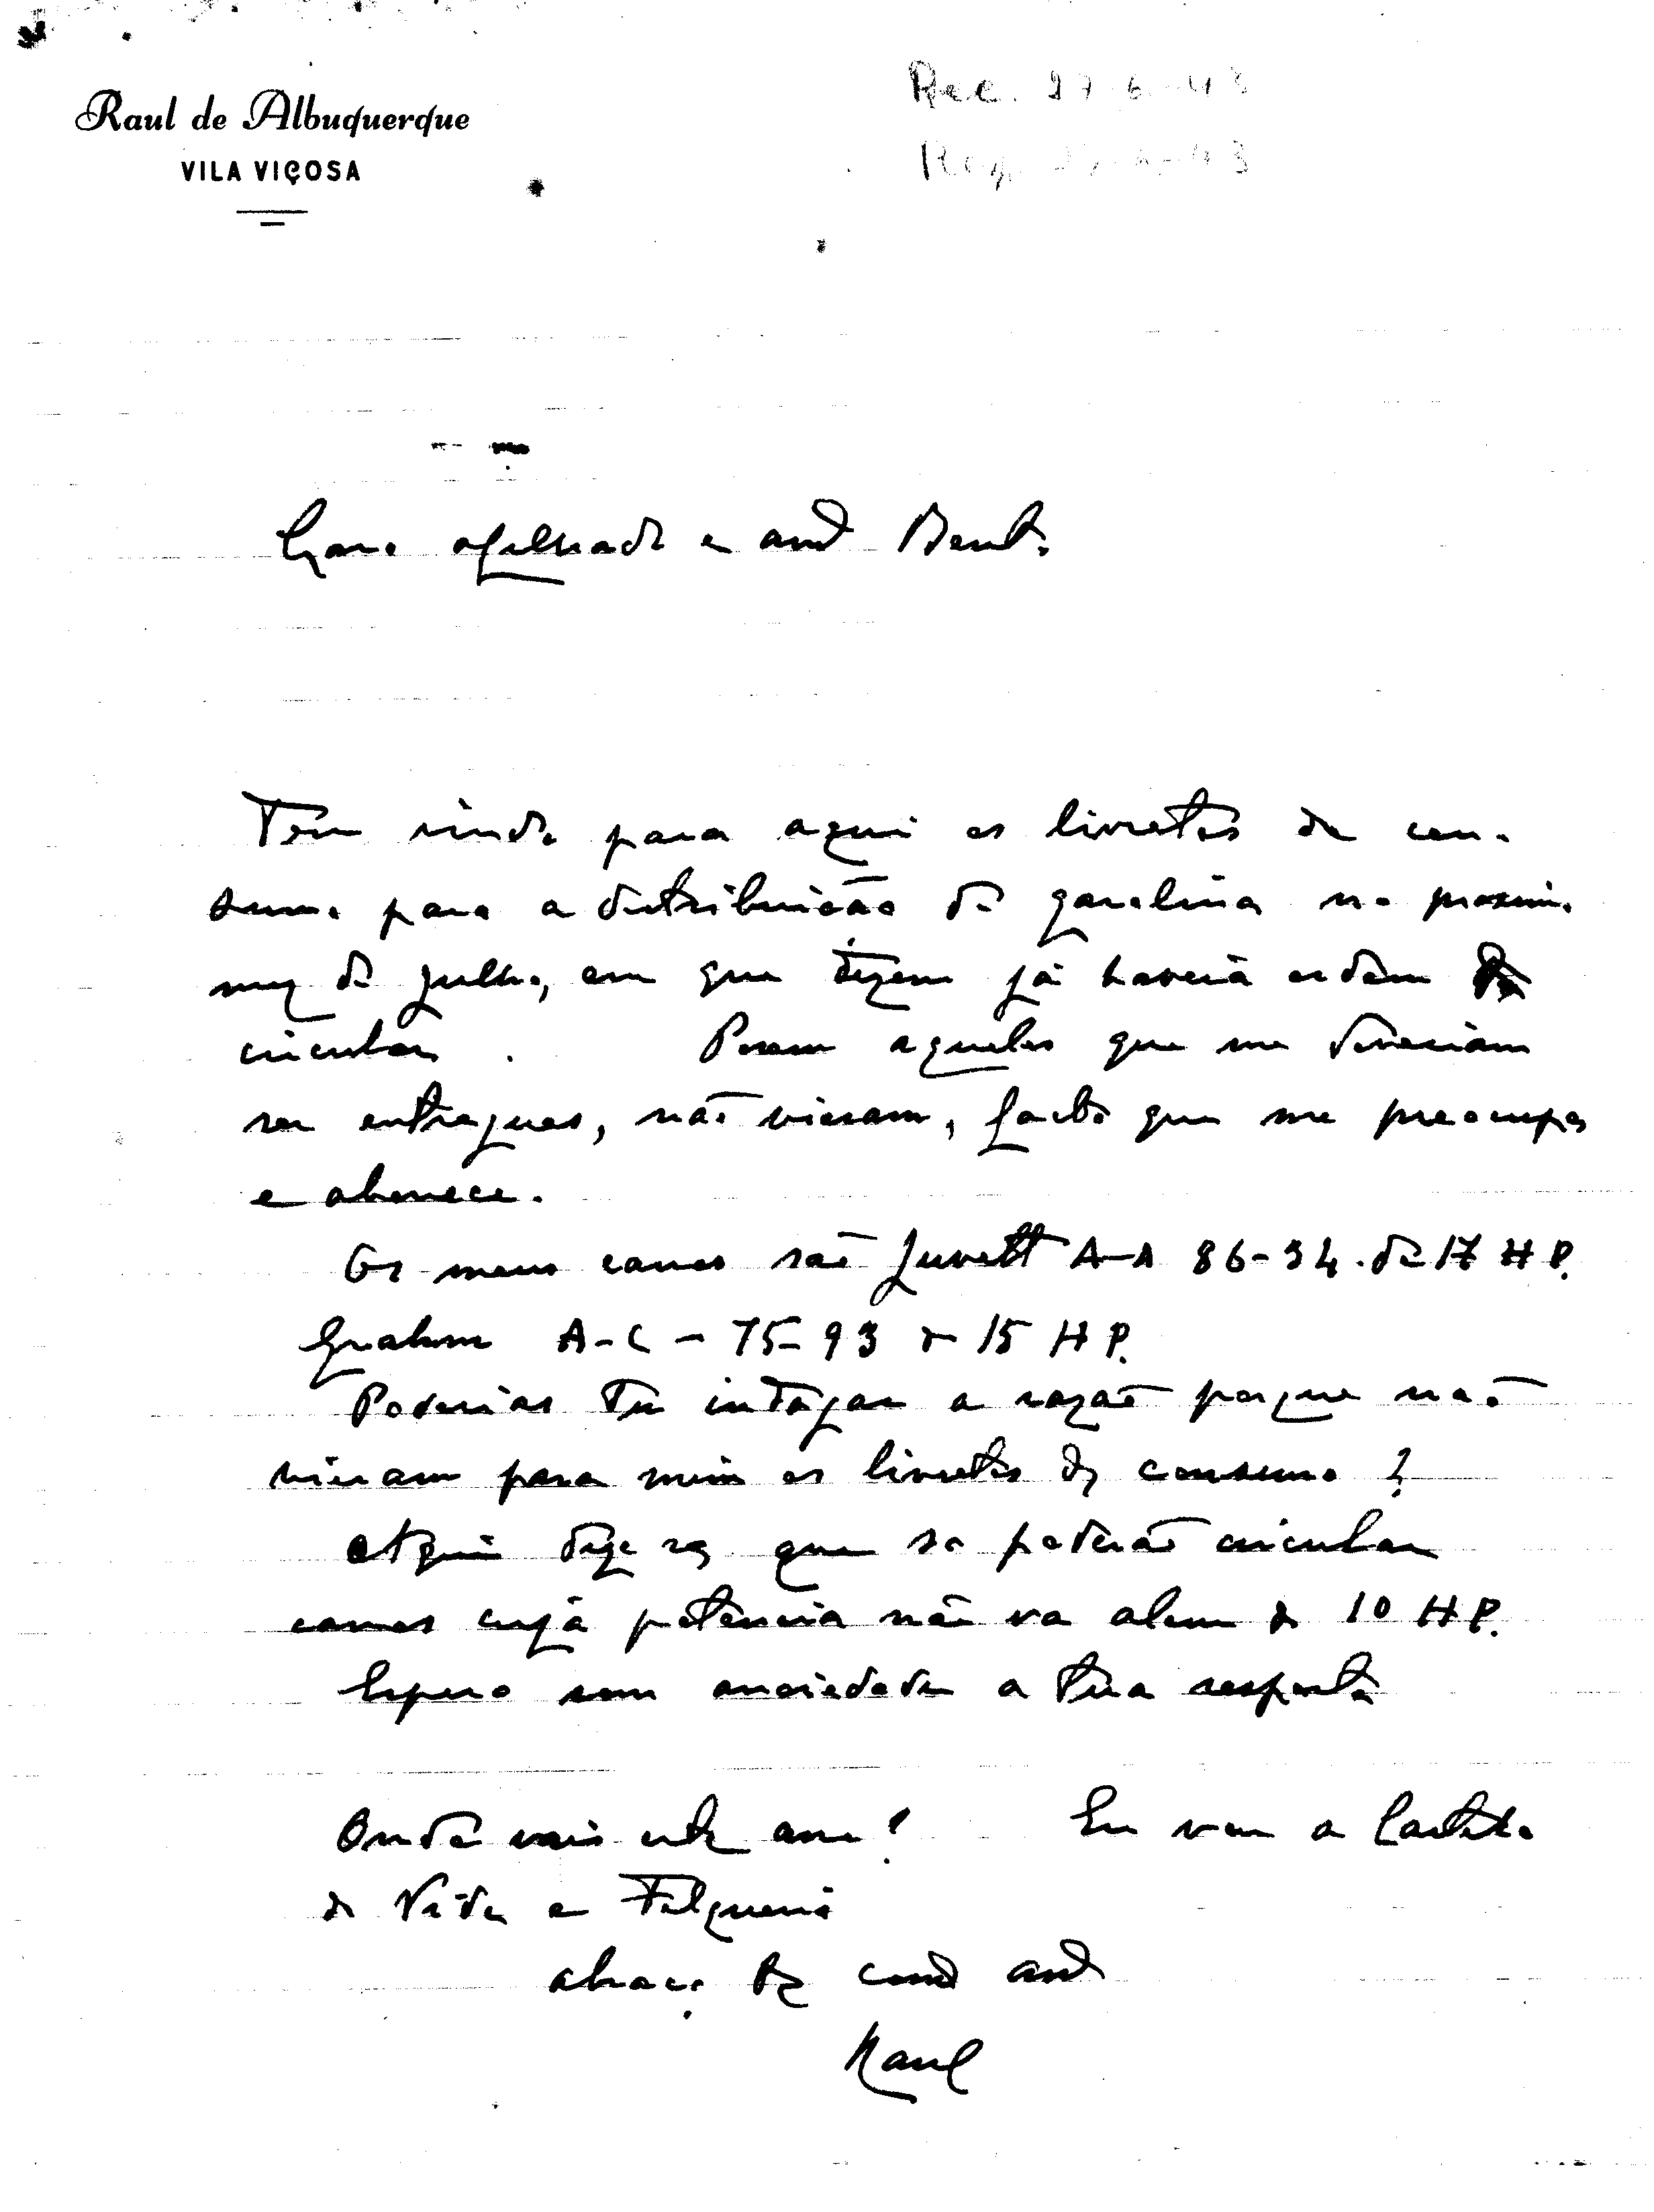 Raul de Albuquerque
VILA VIÇOSA
Rec. 27-6-43
Caro afilhado e amº Bento.
Tem vindo para aqui os livretes de con-
sumo para a distribuicão de gasolina no proximo
mez de Julho, em que dizem já haverá ordem
circular. Porem aqueles que me deveriam
ser entregues, não vieram, facto que me preocupa
e aborrece.
Os meus carros são A-A 86-34. de 17 HP.
Graham A-C-75-93 de 15 HP.
Poderias tu indagar a razão porque não
vieram para mim os livretes de consumo?
Aqui dize se que so poderão circular
carros cuja potencia não va alem de 10 HP.
Espero com anciedade a tua resposta
Onde vais este ano? Eu vou a Castelo
de Vide e Felgueira
abraço do comp amº
Raul